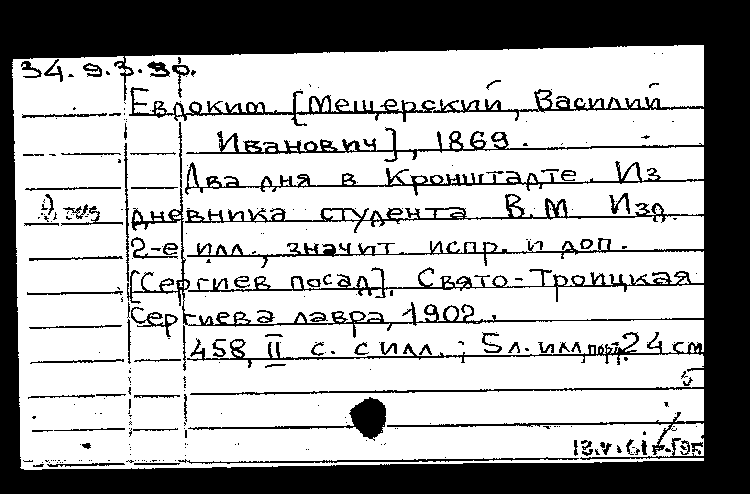 34.9.3.30.
Евдоким [Мещерский, Василий
Иванович], 1869.
Два дня в Кронштадте. Из
дневника студента В.М. Изд.
2-е илл., значит. испр. и доп.
[Сергиев посад], Свято-Троицкая
Сергиева лавра, 1902.
458, II с. с илл.; 5л. илл, порт. 24 см